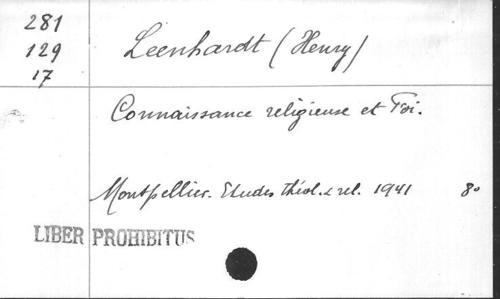 281
129
17
Leenhardt (Henry)
Connaissance religieuse et Foi.
Montpellier. Etudes théol. & rel. 1941 8°
LIBER PROHIBITUS